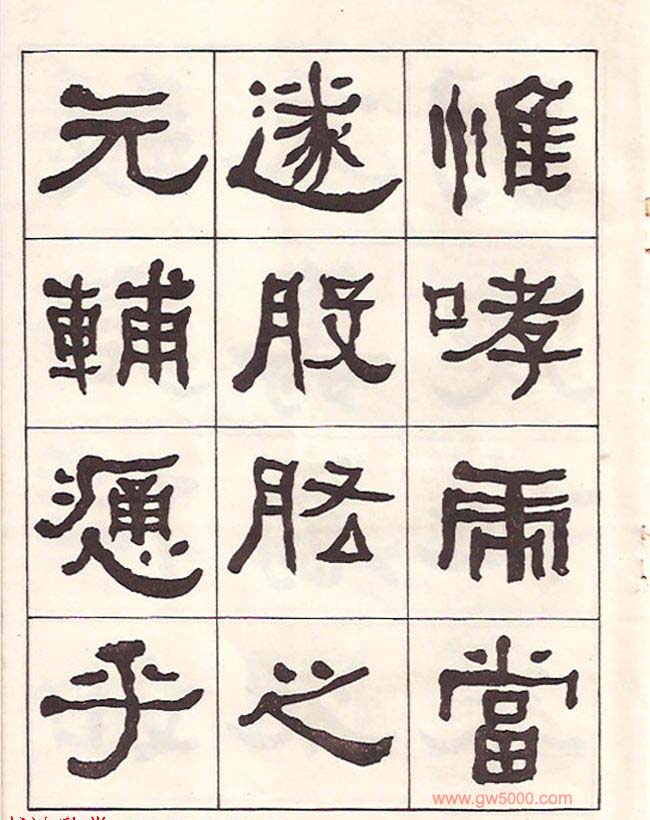 惟哮虎當
遂股肱之
元輔乎
www.gw5000.com